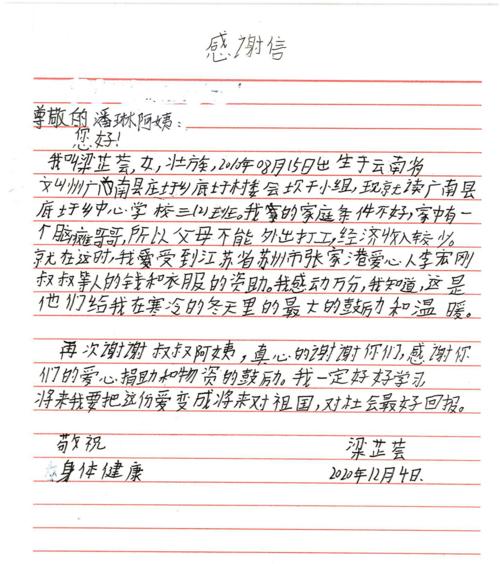 感谢信
尊敬的潘琳阿姨:
您好!
我叫梁芷荟,女,壮族,2010年08月15日出生于云南省
文山州广西南县底圩乡底圩村委会坎干小组,现就读广南县
底圩乡中心学校三(2)班。我家的家庭条件不好,家中有一
个脑瘫哥哥,所以父母不能外出打工,经济收入较少。
就在这时,我爱受到江苏省苏州市张家港爱心人李宏刚
叔叔等人的钱和衣服的资助。我感动万分,我知道,这是
他们给我在寒冷的冬天里的最大的鼓励和温暖。
再次谢谢叔叔阿姨,真心的谢谢你们,感谢你
们的爱心捐助和物资的鼓励。我一定好好学习
将来我要把这份爱变成将来对祖国,对社会最好回报。
敬祝 梁芷荟
身体健康 2020年12月4日.